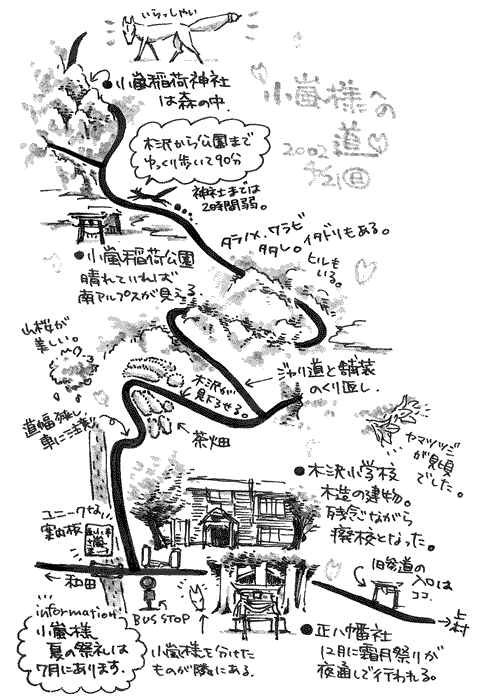 いらっしゃい
小嵐様への
道
2002
4/21(日)
●小嵐稲荷神社
は森の中.
木沢から公園まで
ゆっくり歩いて90分
神社までは
2時間弱。
タラノメ、ワラビ
タタし。イタドリもある。
ヒルも
いる。
●小嵐稲荷公園
晴れていれば
南アルプスが見える
山桜が
美しい。
ジャリ道と舗装
のくり返し.
木沢が
見下ろせる。
道幅狭し
車に注意!
茶畑
ヤマツツジ
が見頃
でした。
●木沢小学校
木造の建物。
残念ながら
廃校となった。
ユニークな
案内板
旧参道の
入口は
ココ.
和田
上村
BUS STOP
information
小嵐様
夏の祭礼は
7月にあります.
小嵐様を分けた
ものが隣にある.
●正八幡社
12月に霜月祭りが
夜通しで行われる。